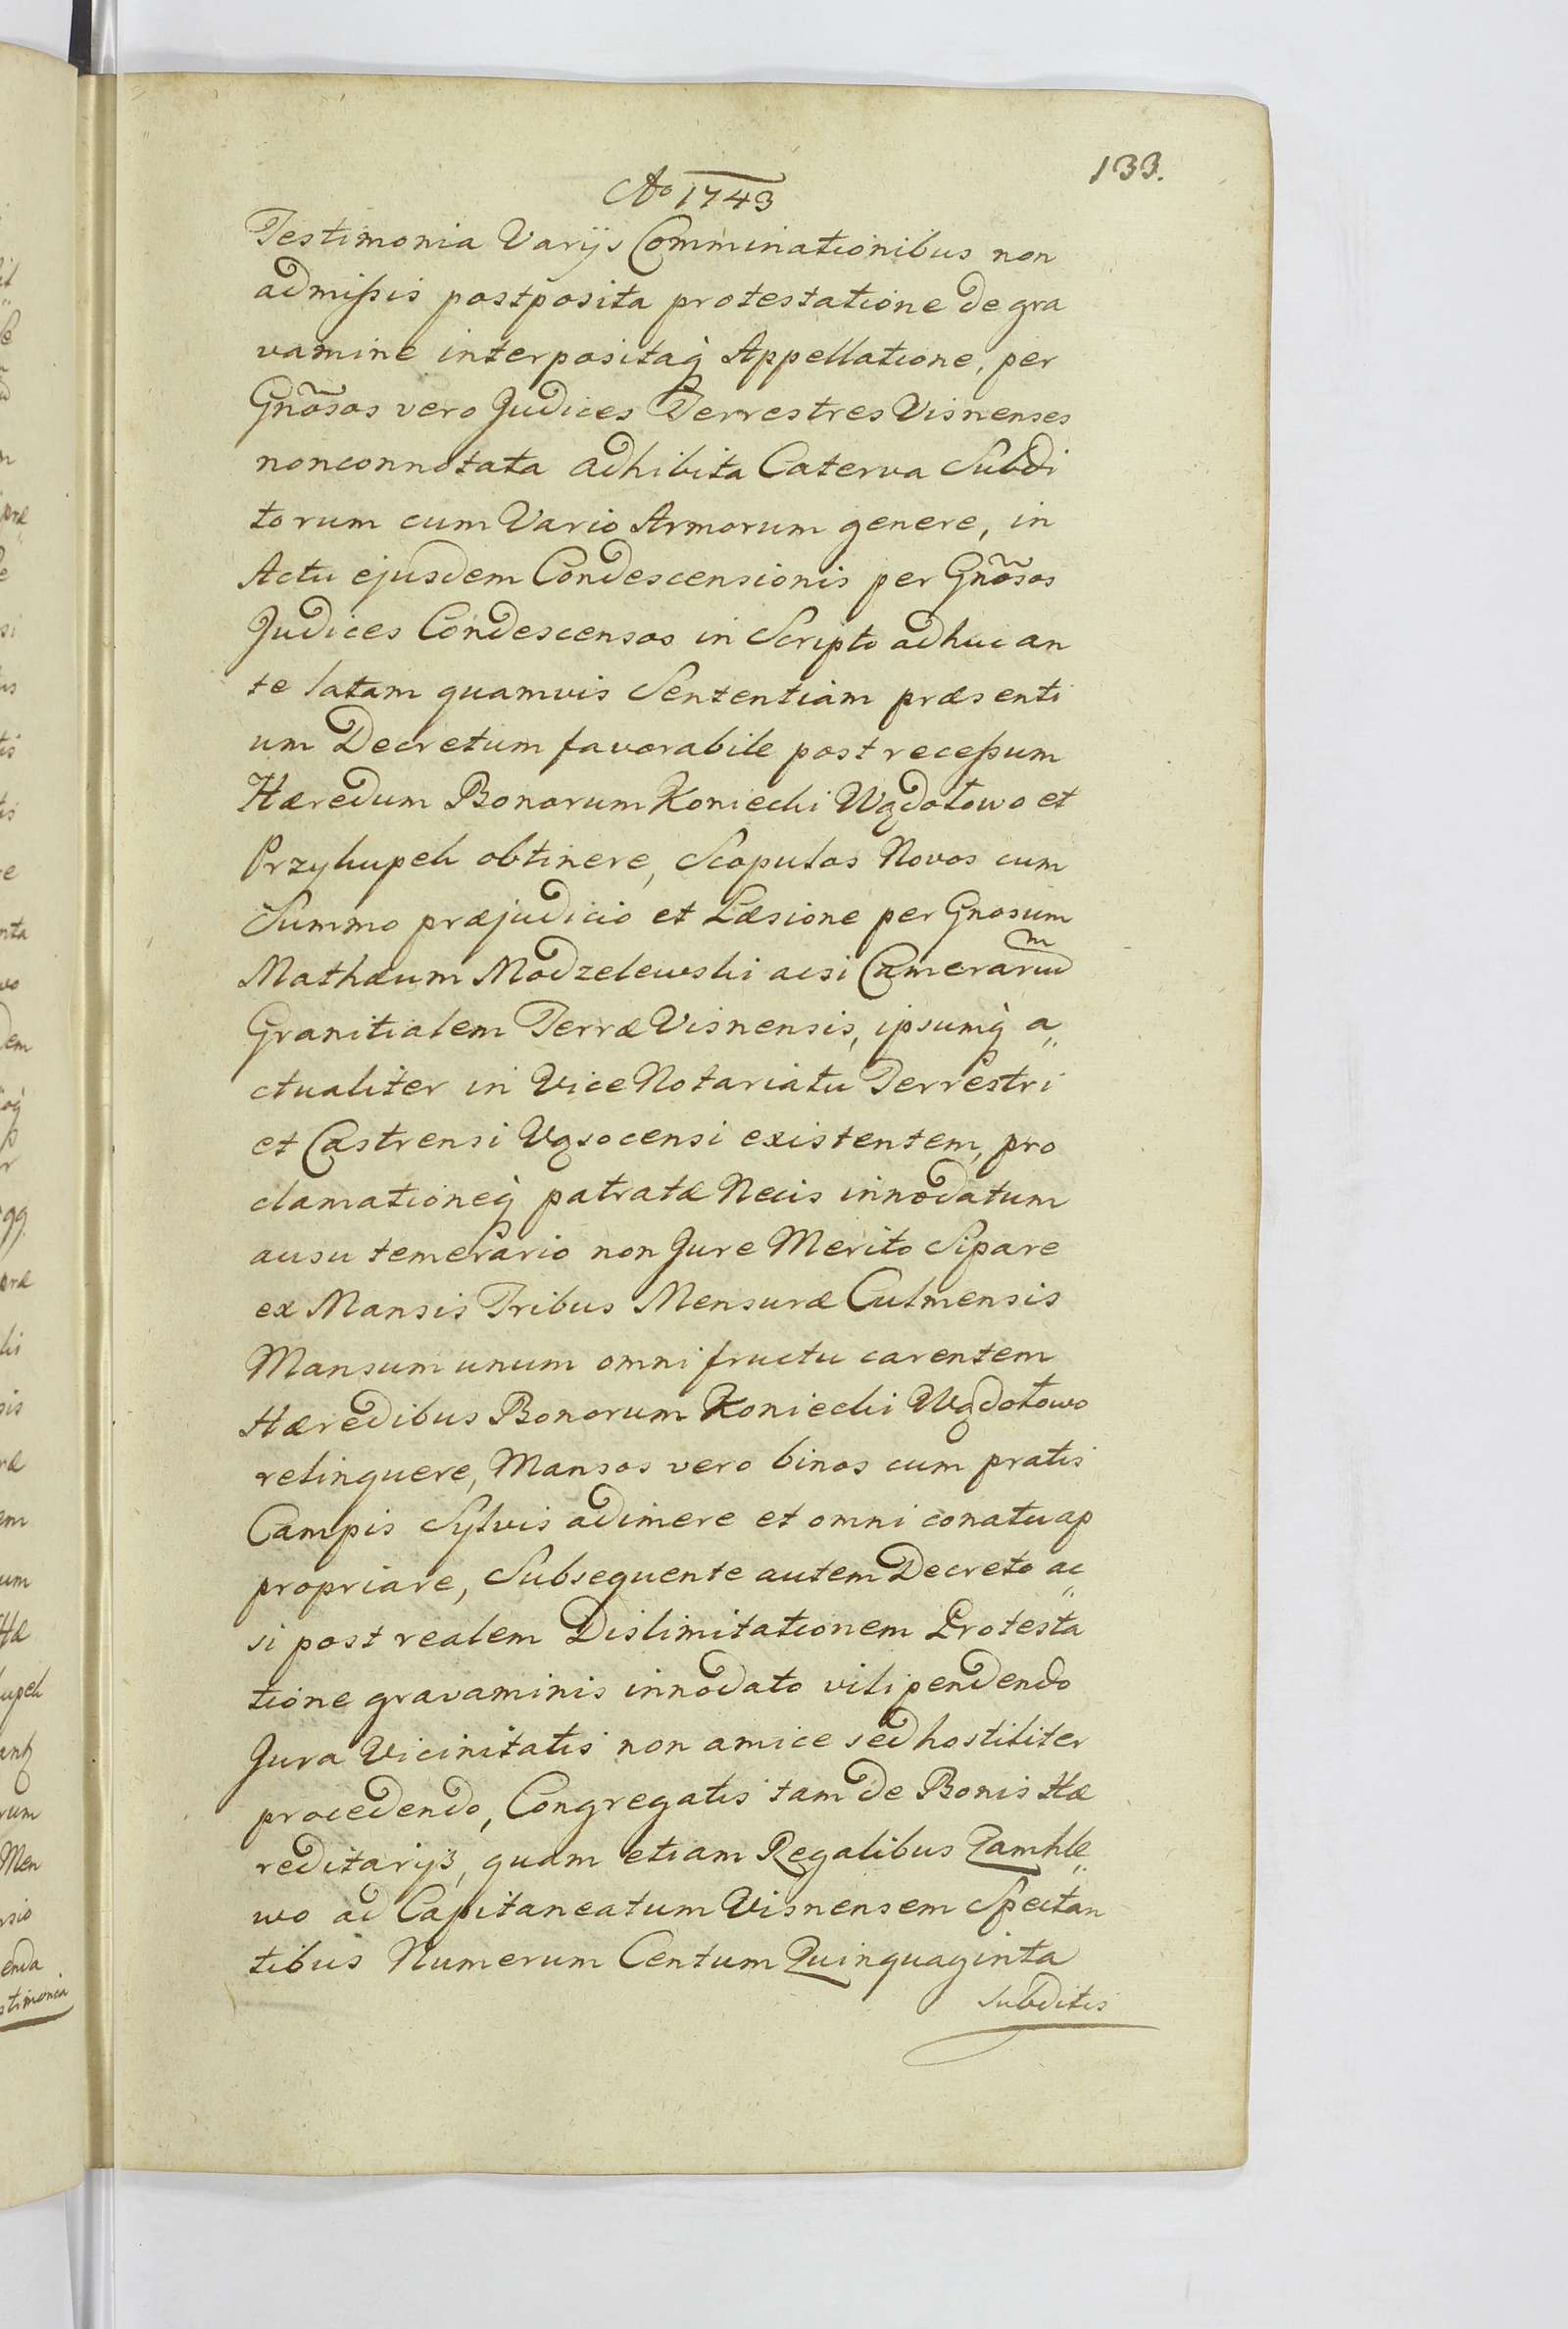 133.
Ao 1743
Testimonia Varijs Comminationibus non
admißis postposita protestatione de gra
vamine interpositaq̀ Appellatione, per
Gnõsos vero Judices Terrestres Visnenses
nonconnotata adhibita Caterva Subdi
torum cum Vario Armorum genere, in
Actu ejusdem Condescensionis per Gnõsos
Judices Condescensos in Scripto adhuc an
te latam quamvis Sententiam præsenti
um Decretum favorabile post receßum
Hæredum Bonorum Koniecki Wądołowo et
Przykupek obtinere, Scopulos Novos cum
Summo præjudicio et Læsione per Gnosum
Mathæum Modzelewski acsi Camerariũm
Granitialem Terræ Visnensis, ipsumq̀ a„
ctualiter in Vice Notariatu Terrestri
et Castrensi Vąsocensi existentem, pro
clamationeq̀ patratæ Necis innodatum
ausu temerario non Jure Merito Sipare
ex Mansis Tribus Mensuræ Culmensis
Mansum unum omni fructu carentem
Hæredibus Bonorum Koniecki Wądołowo
relinquere, Mansos vero binos cum pratis
Campis Sylvis adimere et omni conatu ap
propriare, Subsequente autem Decreto ac„
si post realem Dislimitationem Protesta
tione gravaminis innodato vilipendendo
Jura Vicinitatis non amice sed hostiliter
procedendo, Congregatis tam de Bonis Hæ
reditarijs, quam etiam Regalibus Zamkle„
wo ad Capitaneatum Visnensem Spectan
tibus Numerum Centum Quinquaginta
subditis